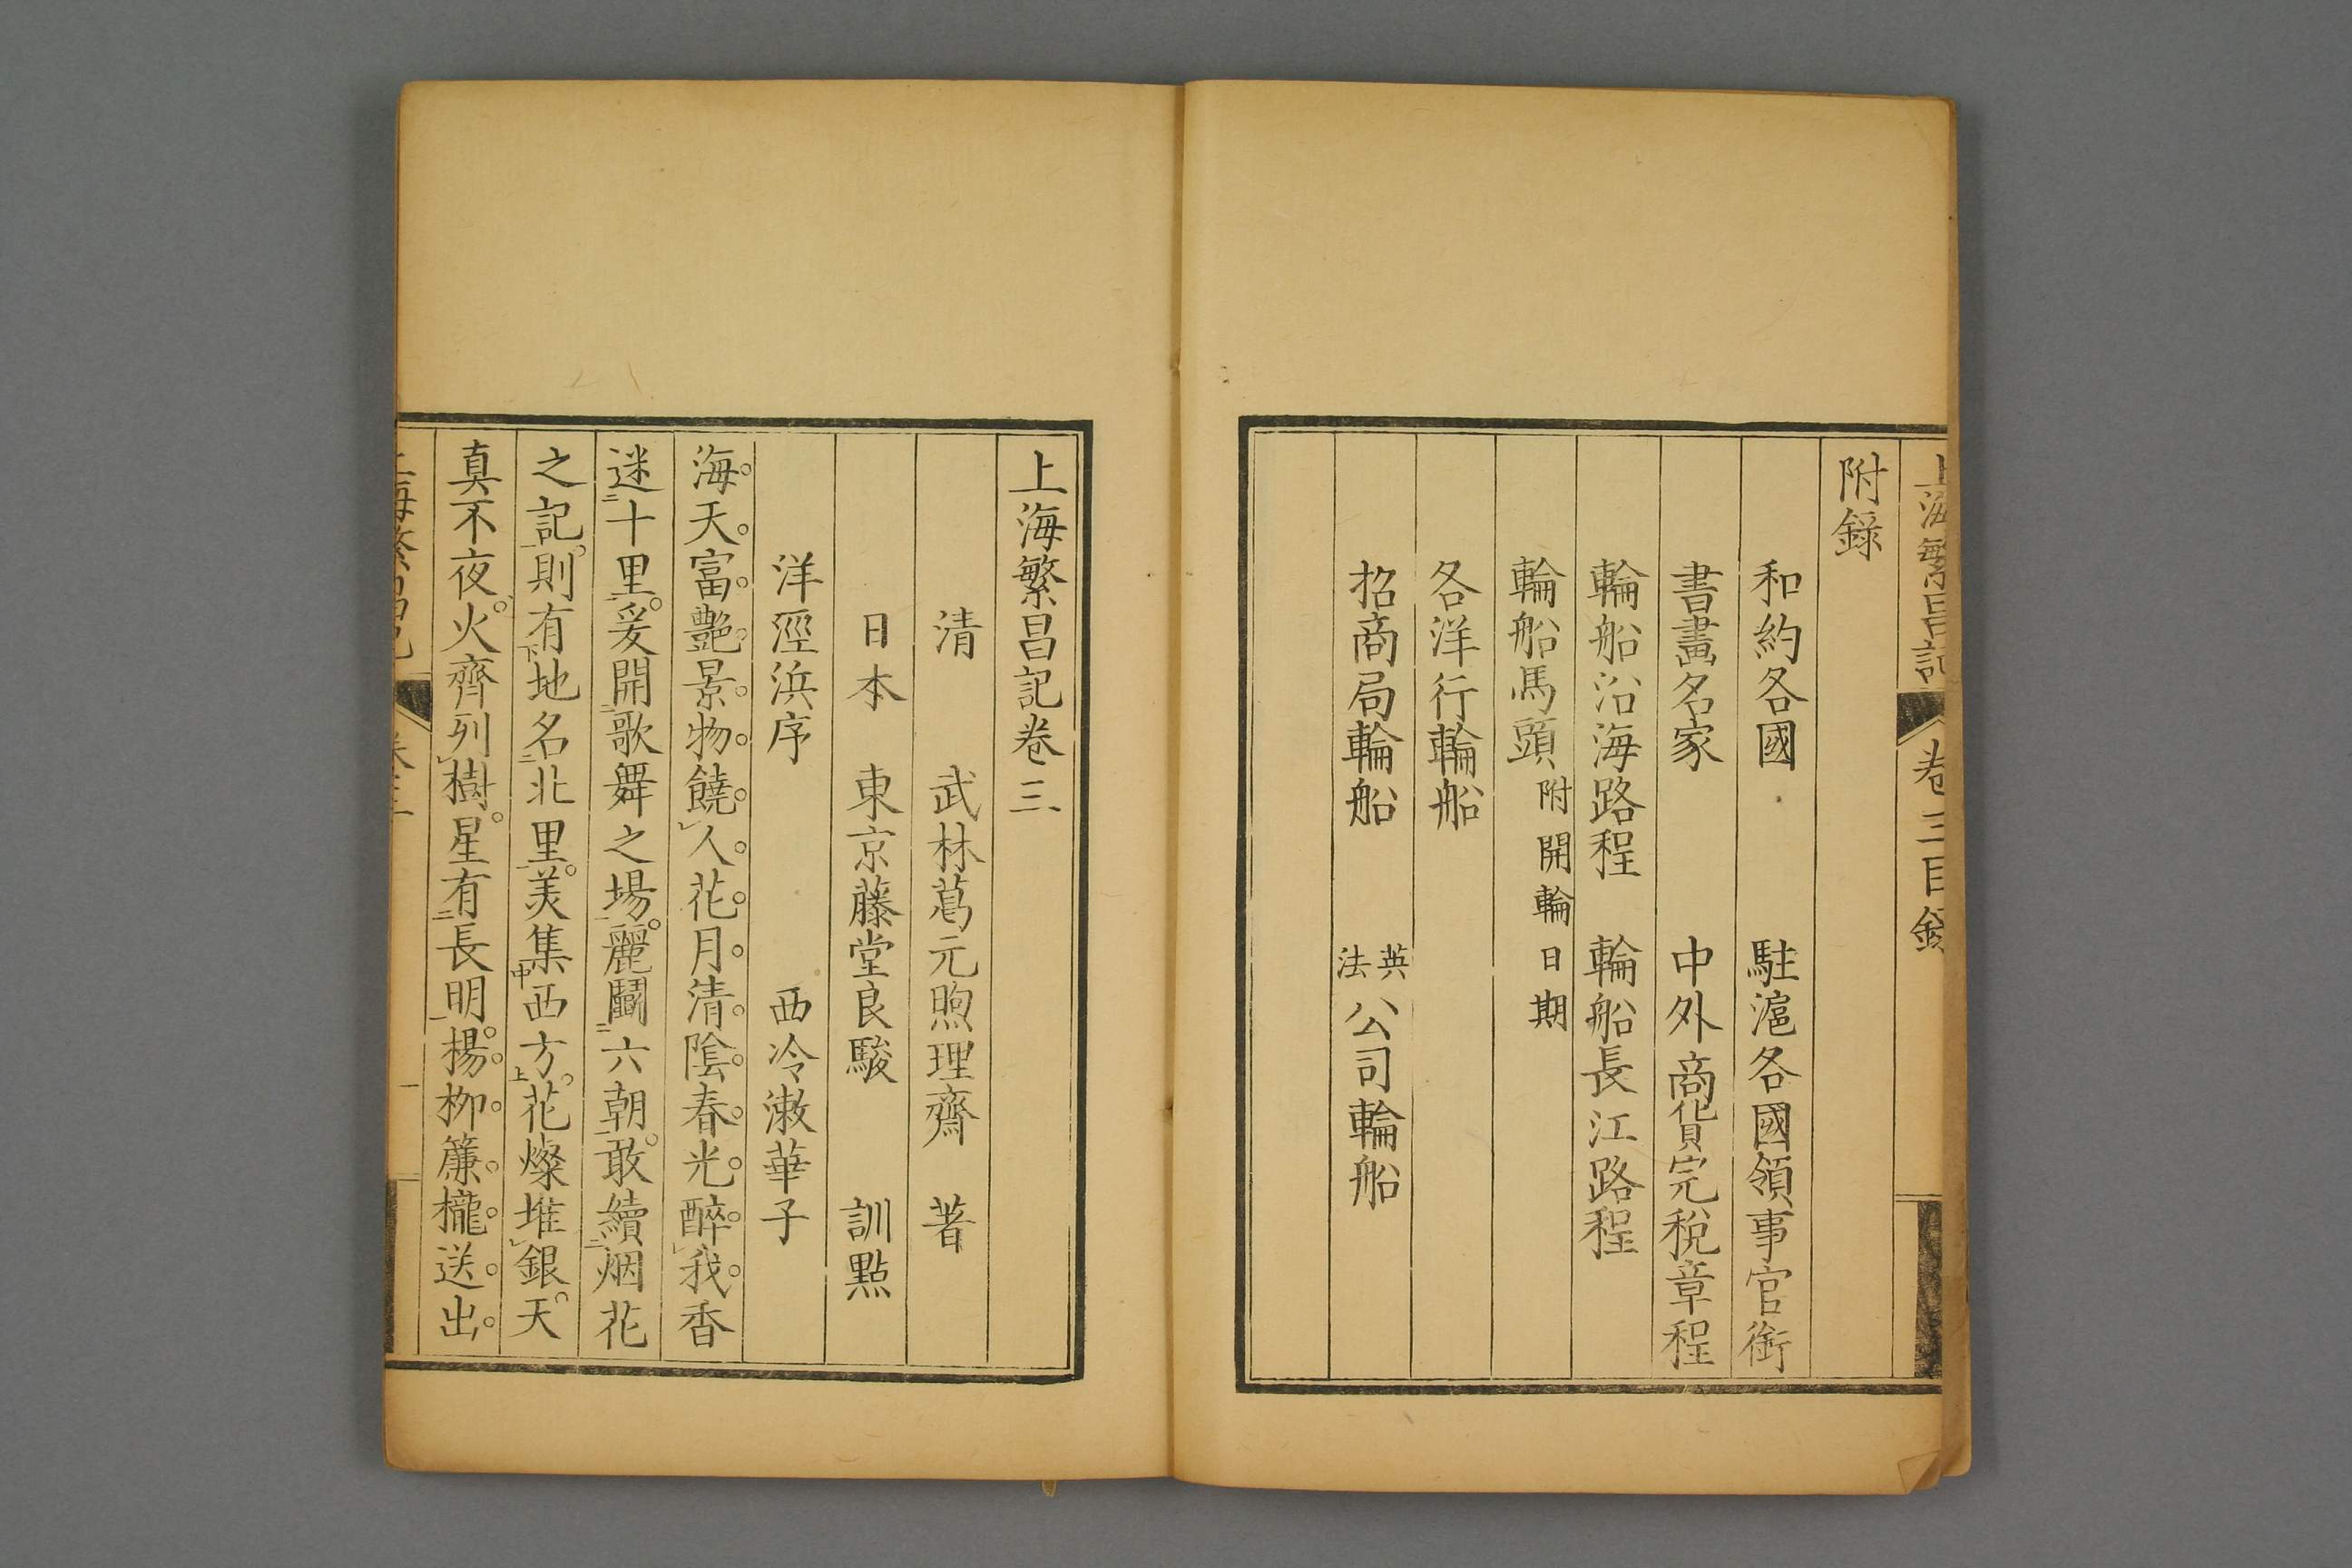 上海繁昌記 卷三目錄
附錄
和約各國 駐滬各國領事官銜
書畫名家 中外商貨完稅章程
輪船沿海路程 輪船長江路程
輪船馬頭附開輪日期
各洋行輪船
招商局輪船 英法公司輪船
上海繁昌記卷三
清 武林葛元煦理齋 著
日本 東京藤堂良駿 訓點
洋涇浜序 西冷漱華子
海。天。富。艷。景。物。饒。人。花。月。清。陰。春。光。醉。我。香
迷二十里一。爰開二歌舞之場一。麗鬭二六朝一。敢續二烟花
之記一。則有下地名二北里一。美集中西方上。花燦堆銀。天
真不夜。火齊列樹。星有二長明一。楊。柳。簾。櫳。送。出。
上海繁昌記 卷三 一